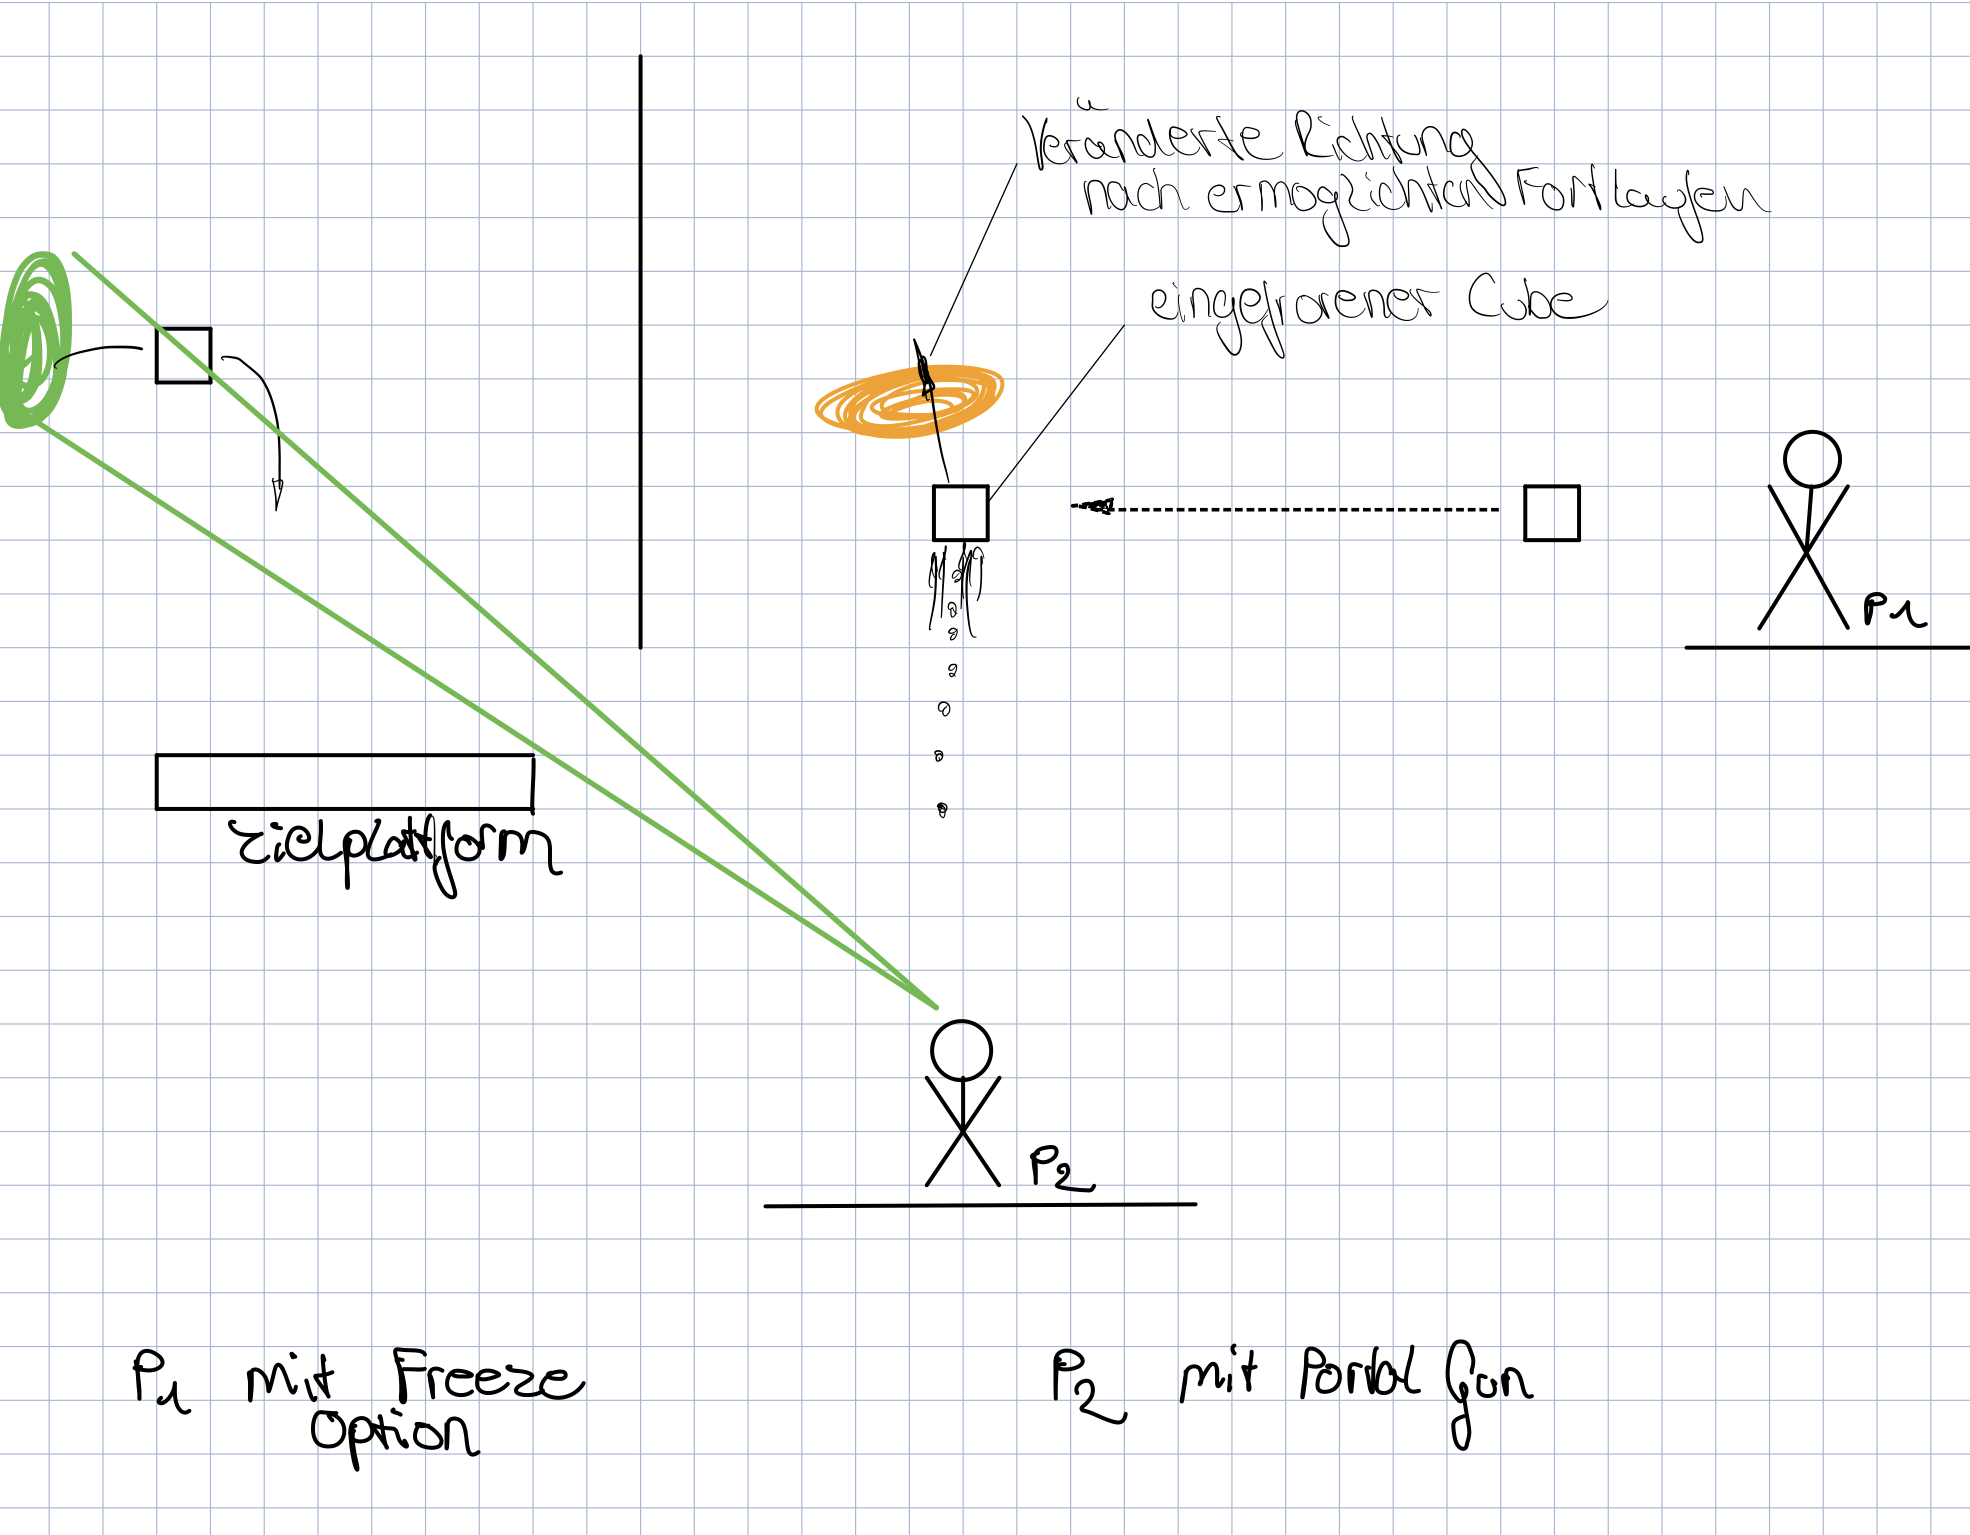 Veränderte Richtung
nach ermöglichten Fortlaufen
eingefrorener Cube
P1
Zielplattform
P2
P1 mit Freeze
Option
P2 mit Portal Gun